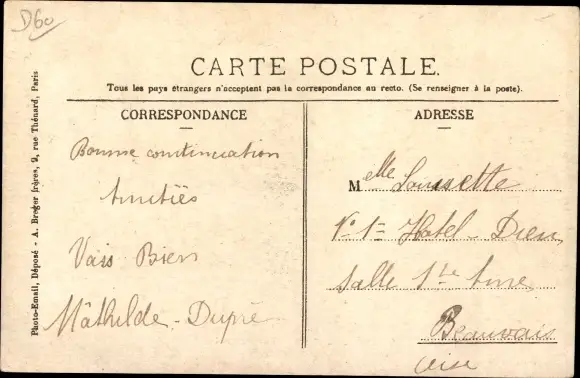 D60
CARTE POSTALE.
Tous les pays étrangers n'acceptent pas la correspondance au recto. (Se renseigner à la poste).
CORRESPONDANCE
Bonne continuation
Amitiés
Vais Bien
Mathilde Dupré
ADRESSE
Melle Louisette
No 1 = Hotel-Dieu
Salle Ste Anne
Beauvais
Oise
Photo-Email, Déposé - A. Breger frères, 9, rue Thénard, Paris